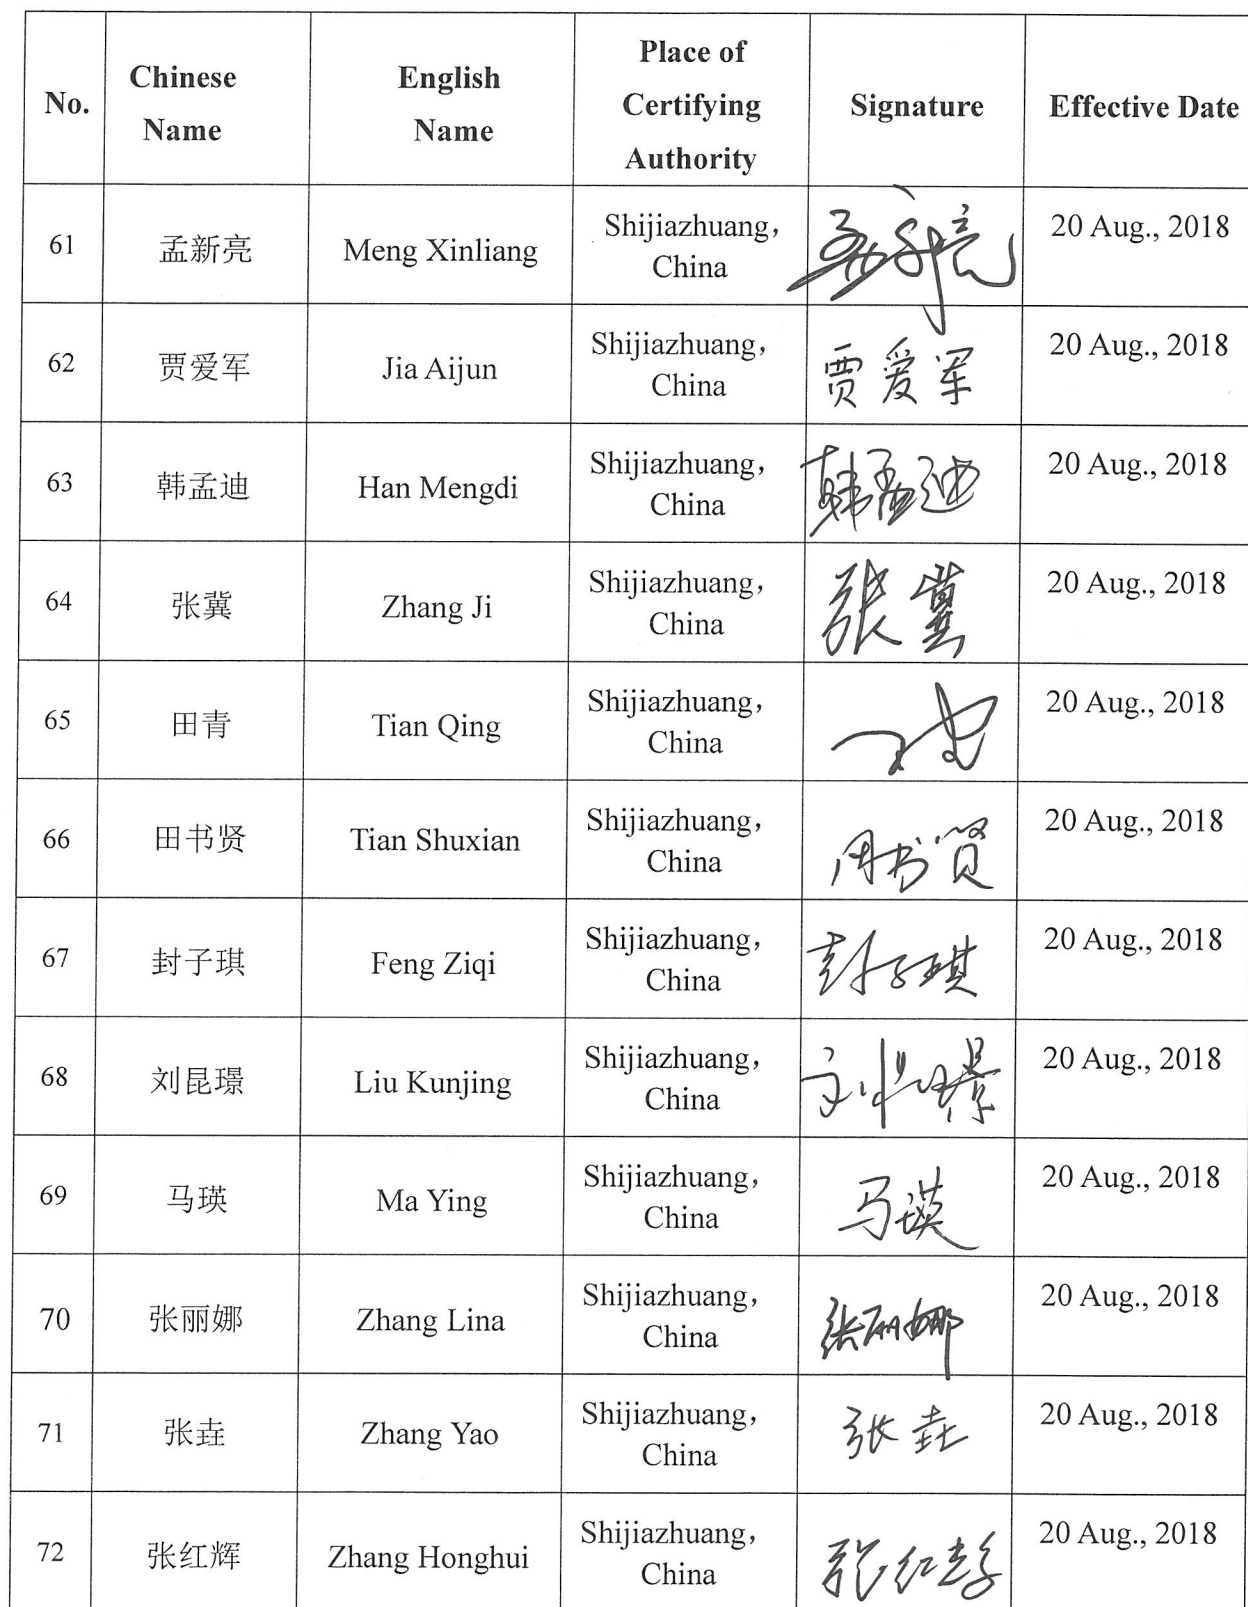 No.
Chinese
Name
English
Name
Place of
Certifying
Authority
Signature
Effective Date
61
孟新亮
Meng Xinliang
Shijiazhuang，
China
孟新亮
20 Aug., 2018
62
贾爱军
Jia Aijun
Shijiazhuang，
China
贾爱军
20 Aug., 2018
63
韩孟迪
Han Mengdi
Shijiazhuang，
China
韩孟迪
20 Aug., 2018
64
张冀
Zhang Ji
Shijiazhuang，
China
张冀
20 Aug., 2018
65
田青
Tian Qing
Shijiazhuang，
China
20 Aug., 2018
66
田书贤
Tian Shuxian
Shijiazhuang，
China
田书贤
20 Aug., 2018
67
封子琪
Feng Ziqi
Shijiazhuang，
China
封子琪
20 Aug., 2018
68
刘昆璟
Liu Kunjing
Shijiazhuang，
China
刘昆璟
20 Aug., 2018
69
马瑛
Ma Ying
Shijiazhuang，
China
马瑛
20 Aug., 2018
70
张丽娜
Zhang Lina
Shijiazhuang，
China
张丽娜
20 Aug., 2018
71
张垚
Zhang Yao
Shijiazhuang，
China
张垚
20 Aug., 2018
72
张红辉
Zhang Honghui
Shijiazhuang，
China
张红辉
20 Aug., 2018